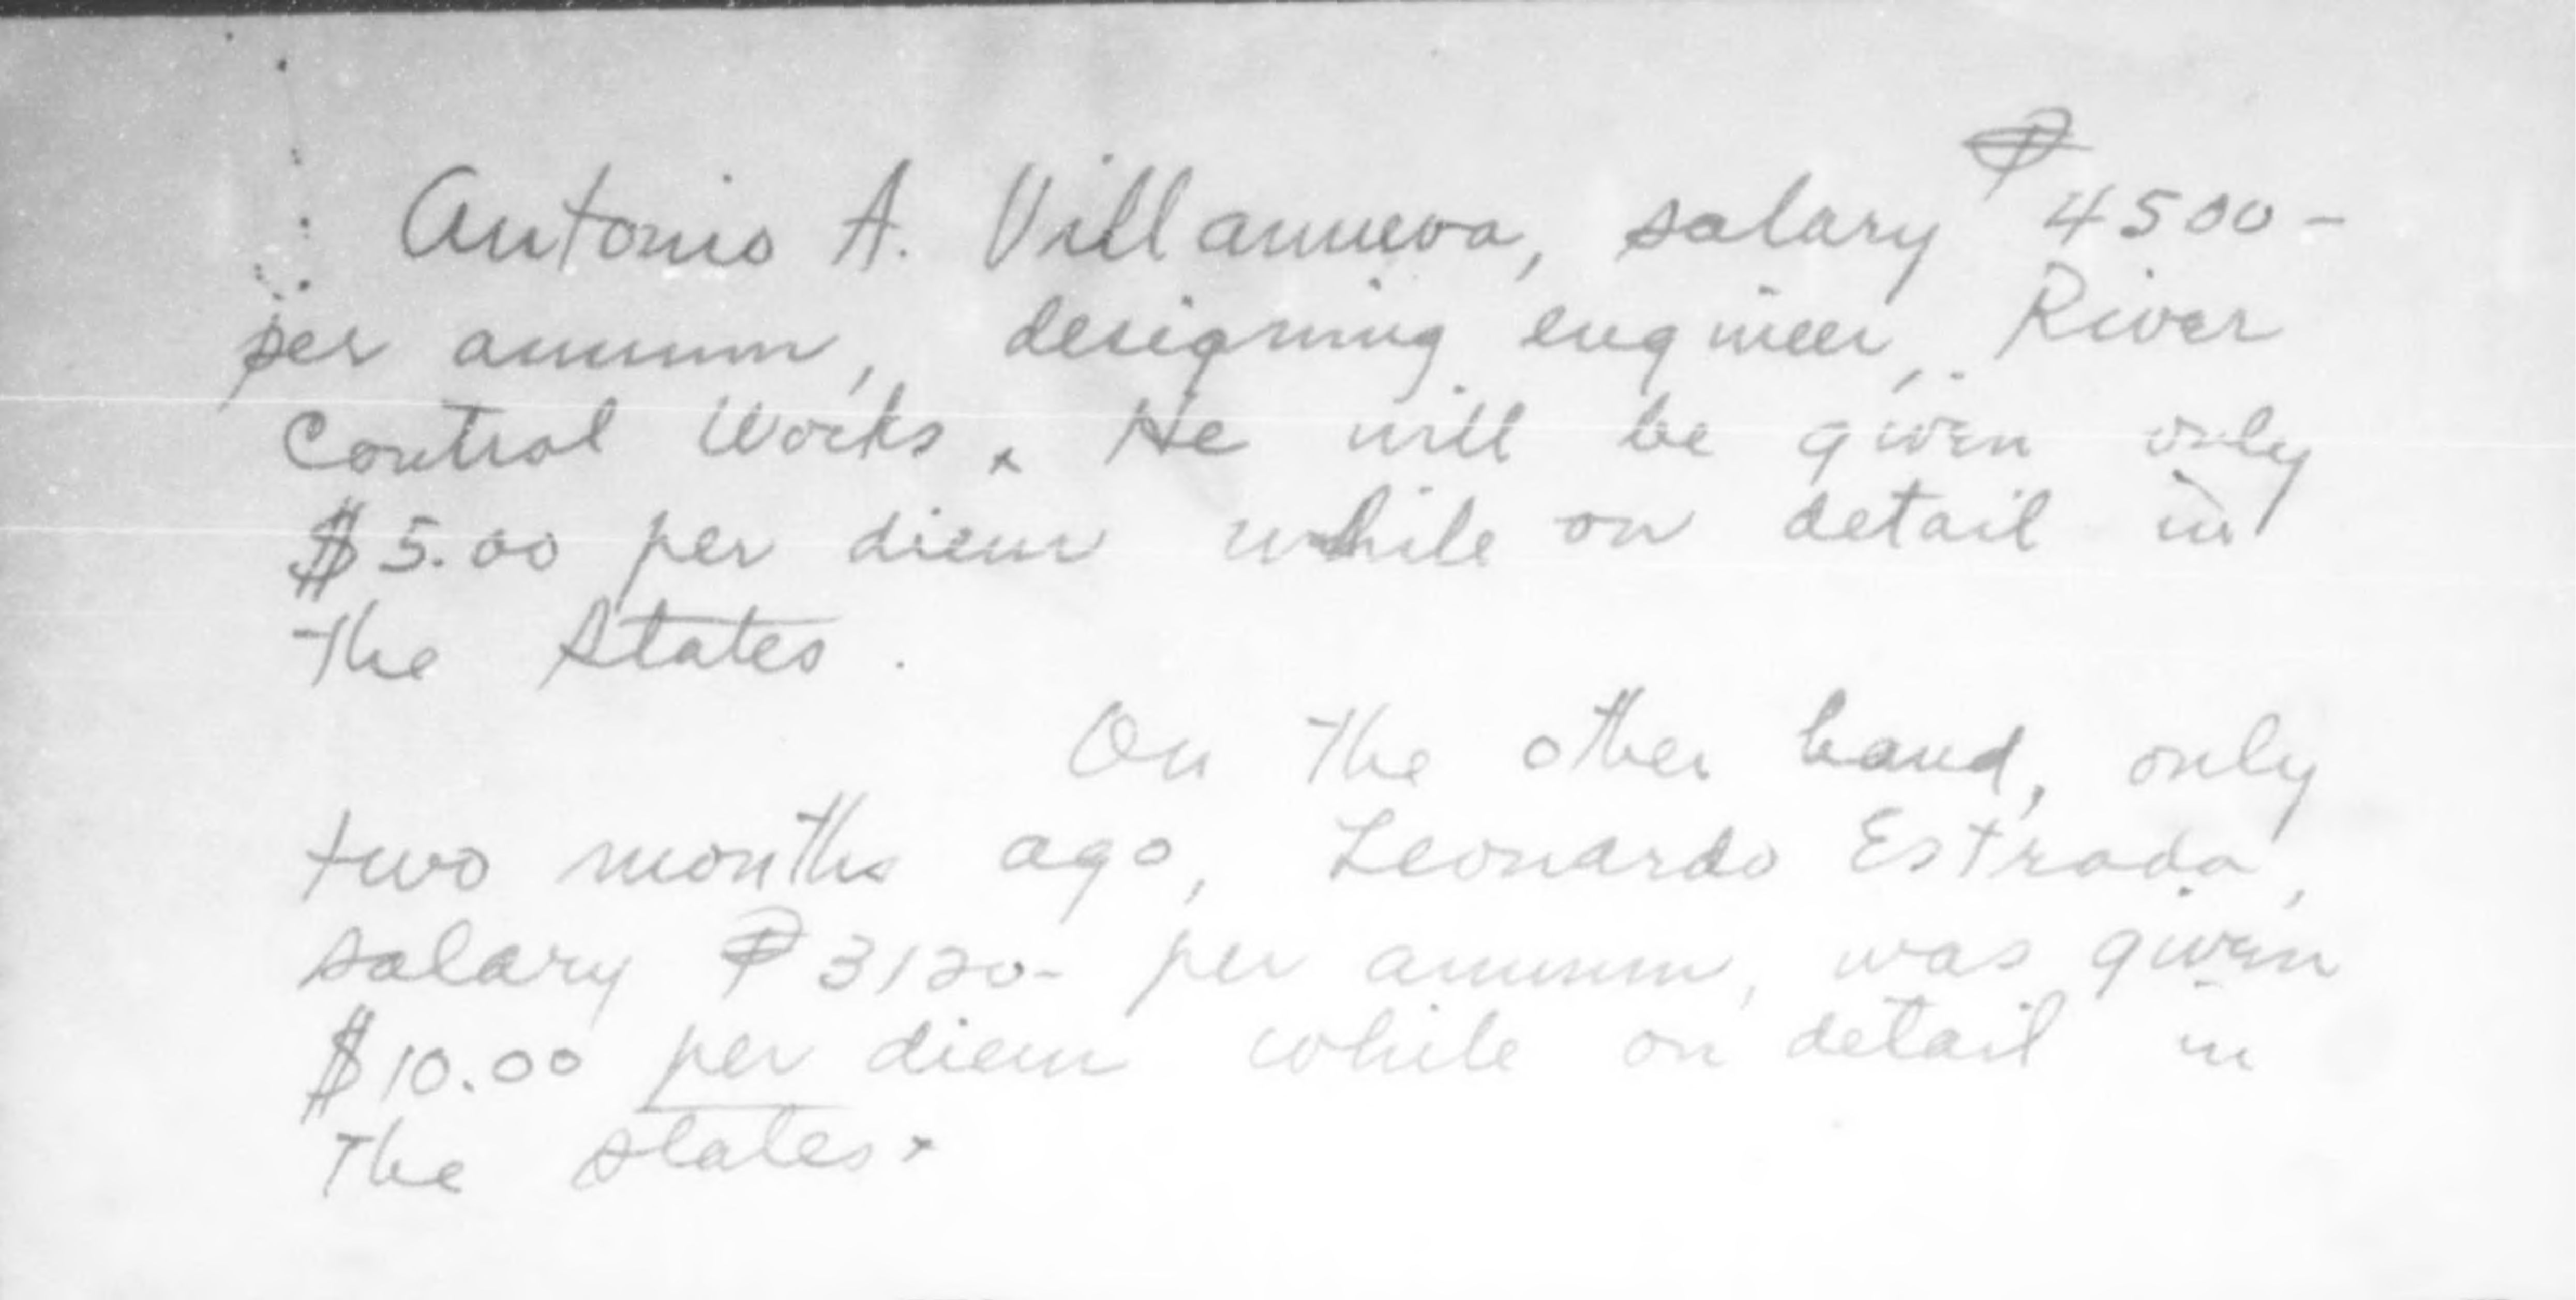 Antonio A. Villanueva, salary ₱4500-
per annum, designing engineer, River
Control Works. He will be given only
$5.00 per diem while on detail in
the States.
On the other hand, only
two months ago, Leonardo Estrada,
salary ₱3120- per annum, was given
$10.00 per diem while on detail in
the States.